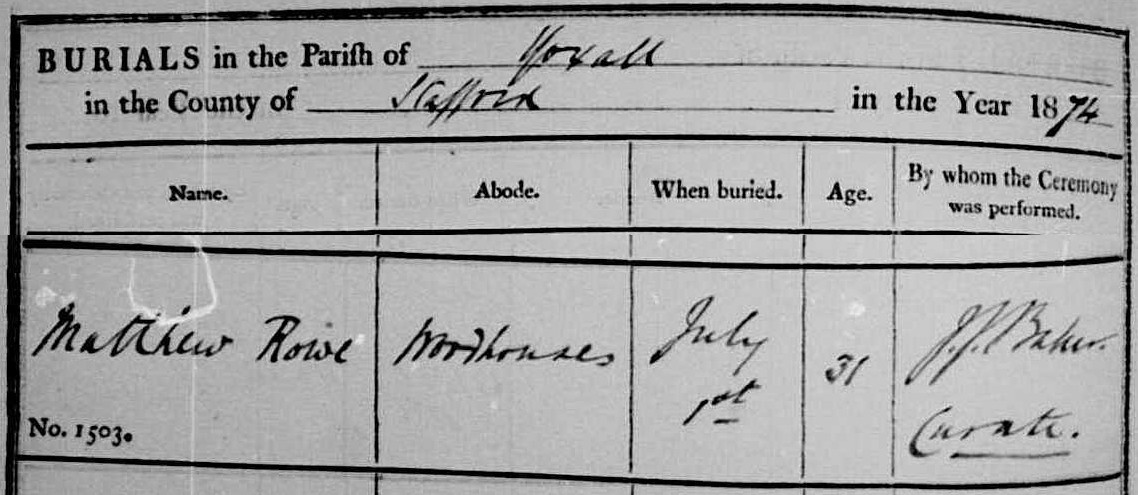 BURIALS in the Pariſh of Yoxall
in the County of Stafford in the Year 1874
Name. Abode. When buried. Age. By whom the Ceremony was performed.
Matthew Rowe Woodhouses July 1st 31 J. J. Baker. Curate.
No. 1503.